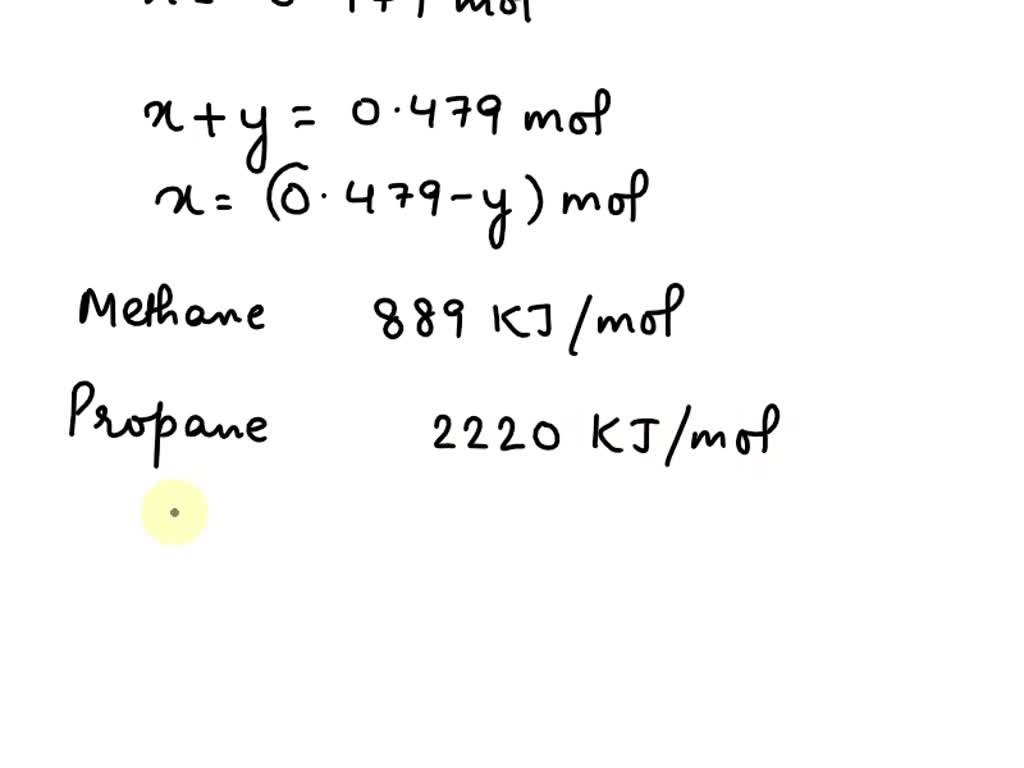 x + y = 0.479 mol
x = (0.479 - y) mol
Methane 889 KJ/mol
Propane 2220 KJ/mol